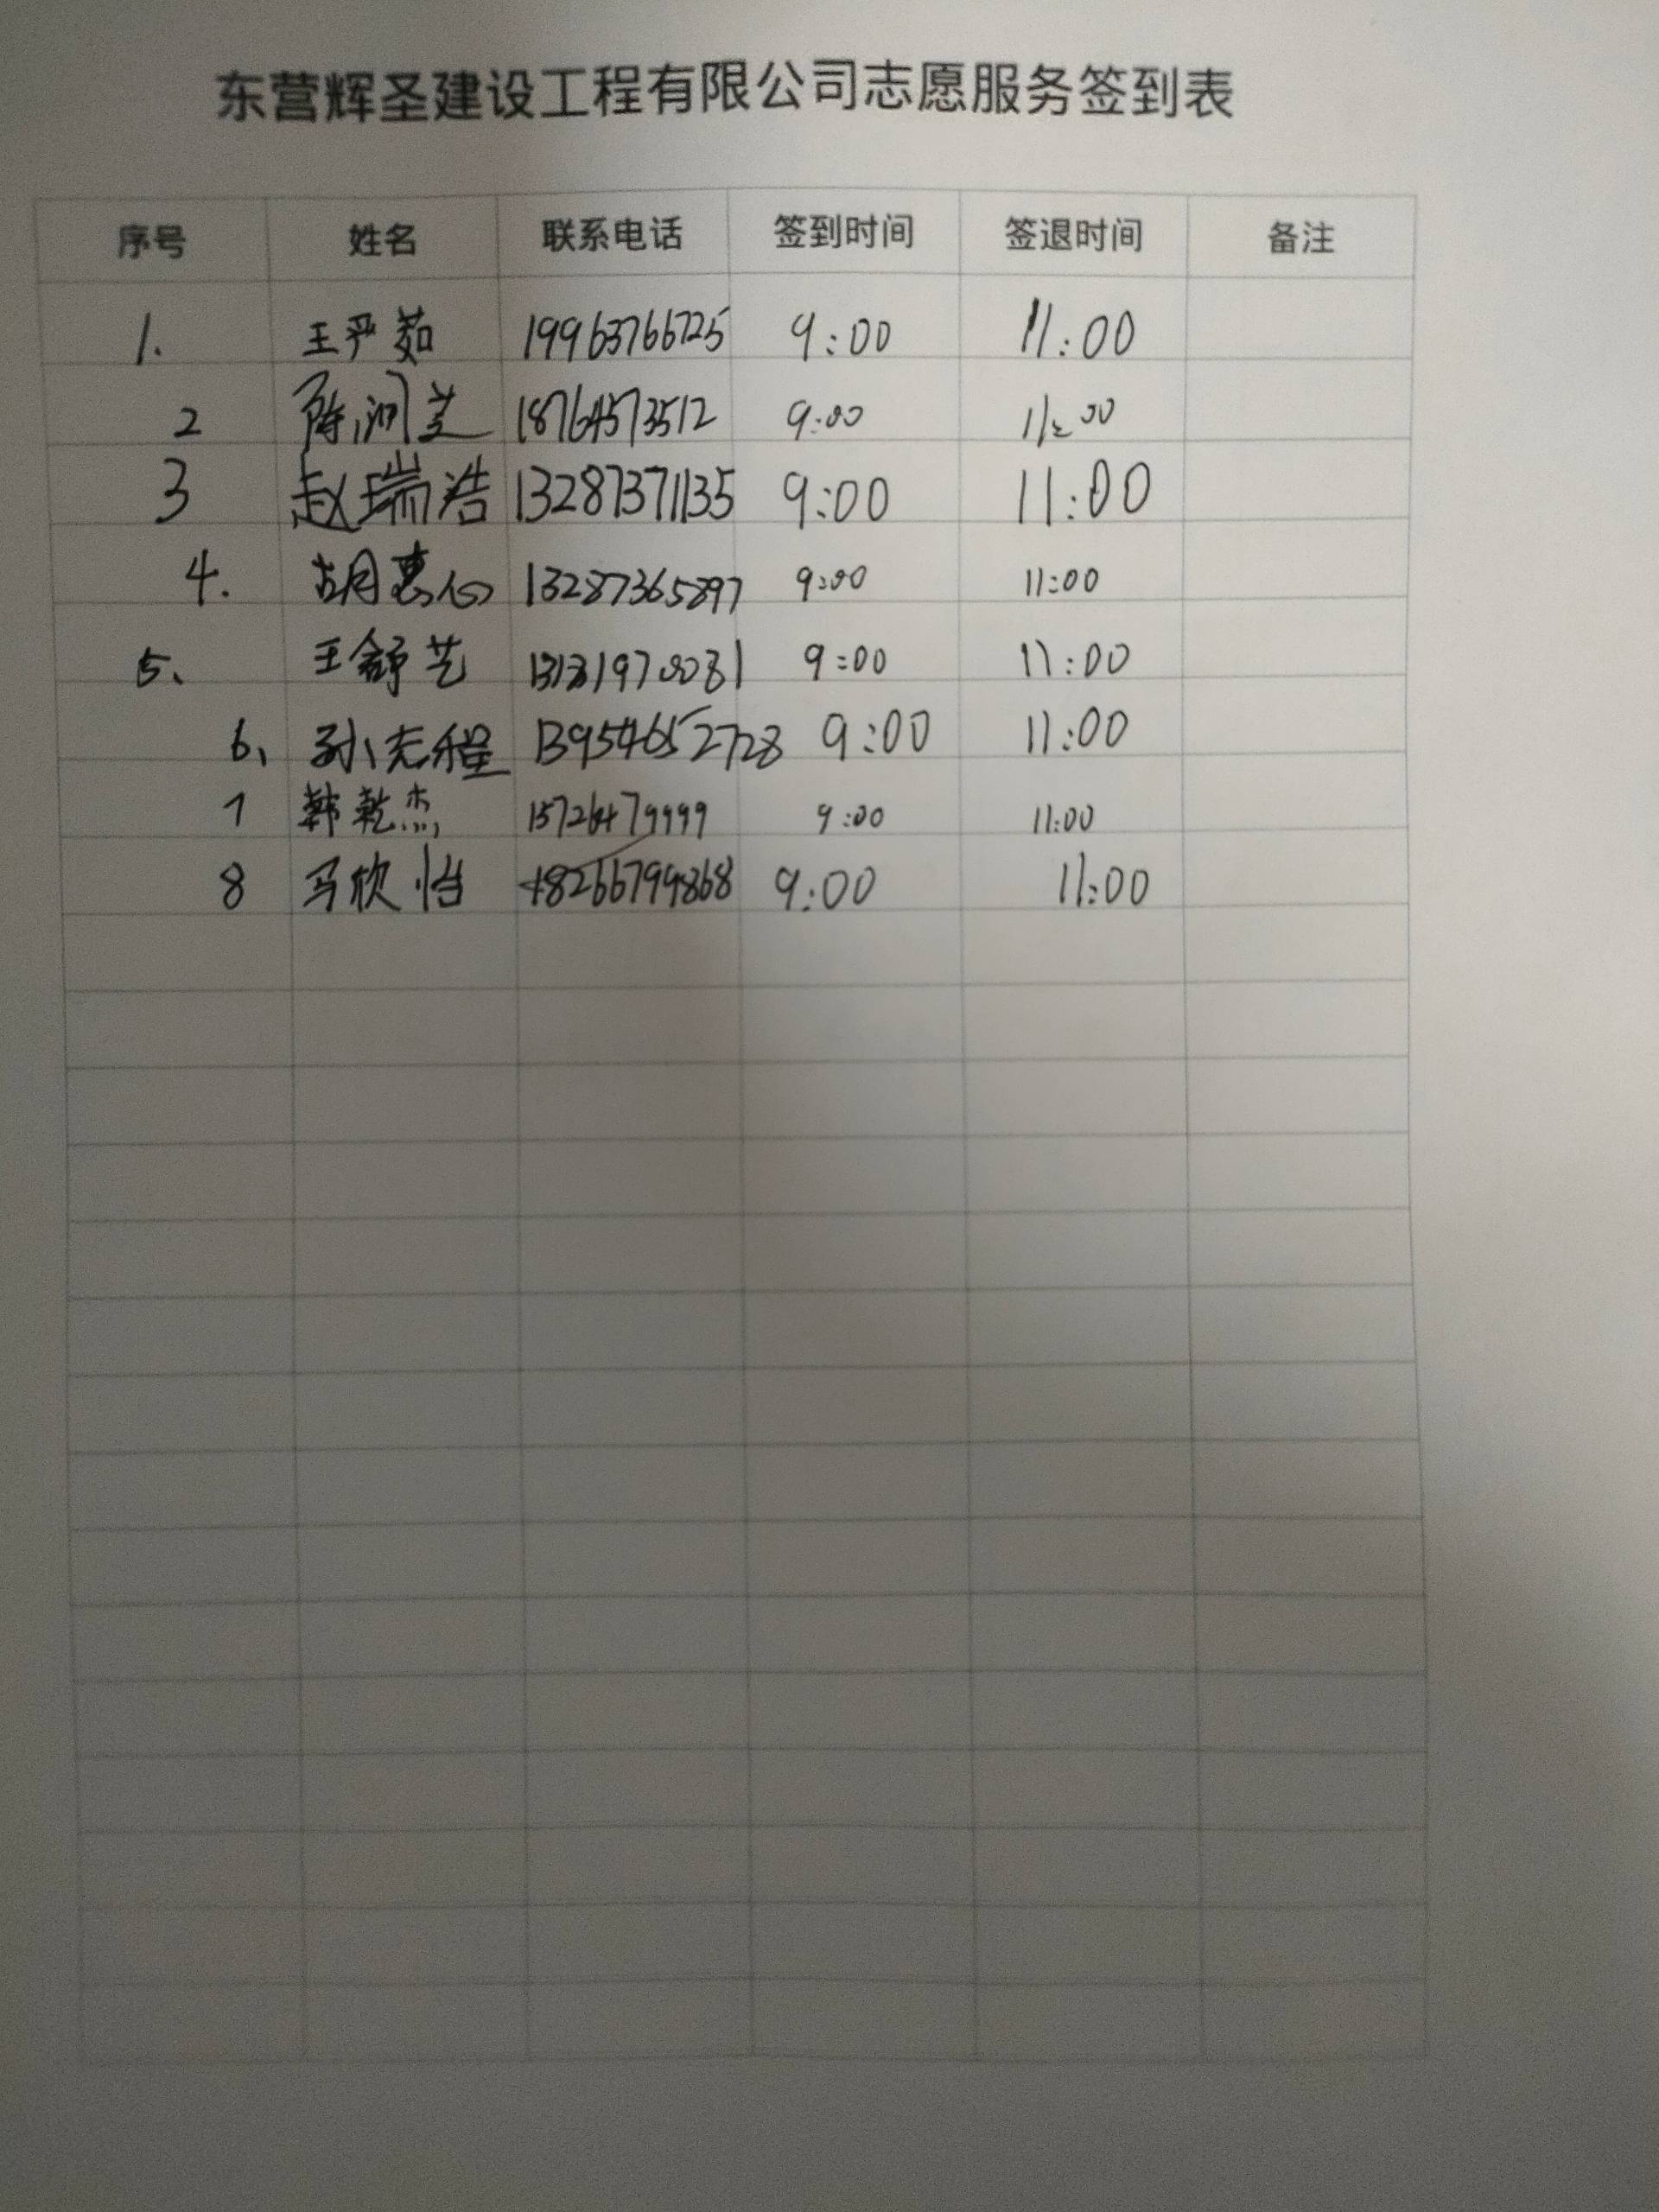 东营辉圣建设工程有限公司志愿服务签到表
序号 姓名 联系电话 签到时间 签退时间 备注
1. 王严茹 19963766725 9:00 11:00
2 陈润芝 18764573512 9:00 11:00
3 赵瑞浩 13287371135 9:00 11:00
4. 胡惠心 13287365897 9:00 11:00
5、 王舒艺 9:00 11:00
6、 孙志程 13954652728 9:00 11:00
7 韩乾杰 15726479999 9:00 11:00
8 马欣怡 18266799868 9:00 11:00